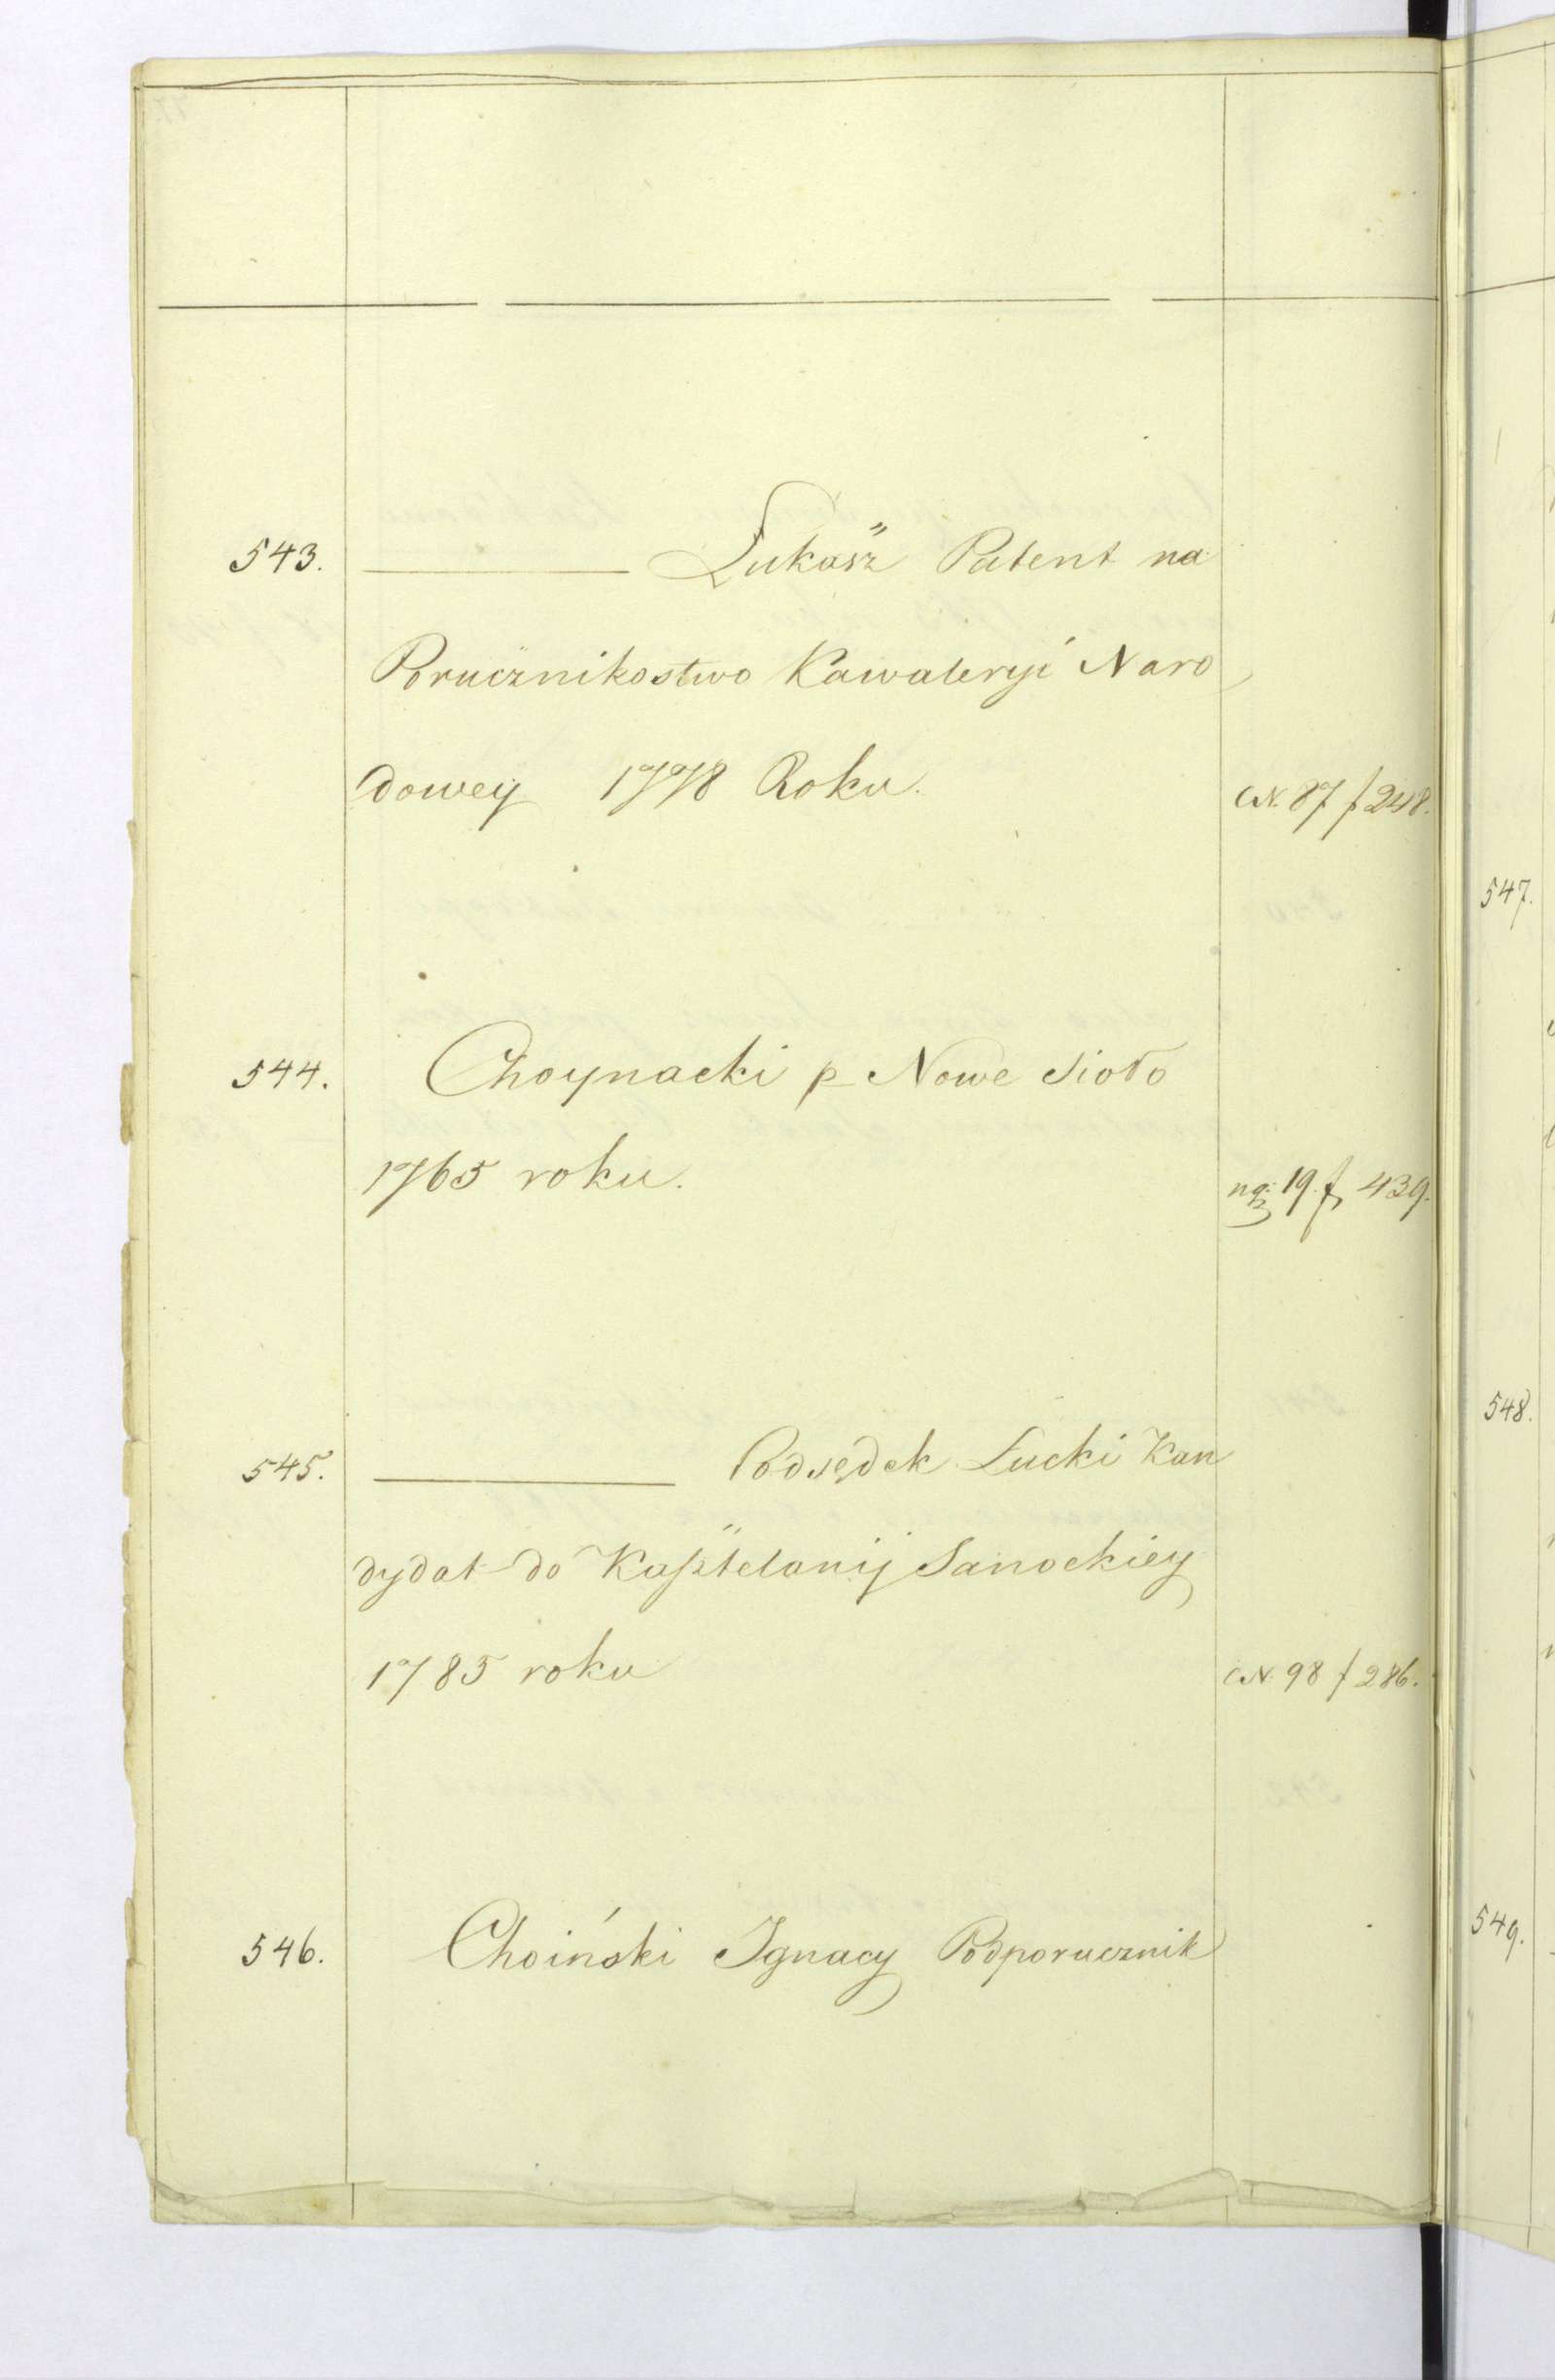 543. ——— Łukasz Patent na
Porucznikostwo Kawaleryi Naro
dowey 1778 Roku. N. 87 f 248.
544. Choynacki p Nowe Sioło
1765 roku. 19 f 439.
545. ——— Podsędek Łucki Kan
dydat do Kasztelanij Sanockiey
1785 roku N. 98 f 286.
546. Choiński Ignacy Podporucznik
547.
548.
549.